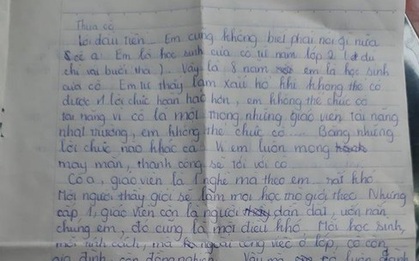 Thưa cô
Lời đầu tiên Em cũng không biết phải nói gì nữa
cô ạ. Em là học sinh của cô từ năm lớp 2 (
chỉ vài buổi thôi). Vậy là 8 năm em là học sinh
của cô. Em tự thấy làm xấu hổ khi không thể có
được 1 lời chúc hoàn hảo hơn, em không thể chúc cô
tài năng vì cô là một trong những giáo viên tài năng
nhất trường, em không thể chúc cô .... Bằng những
lời chúc nào khác cả. Vì em luôn mong
may mắn, thành công sẽ tới với cô
Cô ạ, giáo viên là 1 nghề mà theo em rất khó.
Mỗi người thầy giỏi sẽ làm mọi học trò giỏi theo. Nhưng
cấp 1, giáo viên còn là người dẫn dắt, uốn nắn
chúng em, đó cũng là một điều khó. Mỗi học sinh,
mỗi tính cách, mà ngoài công việc ở lớp, cô còn
gia đình, còn đồng nghiệp. Vậy mà cô luôn